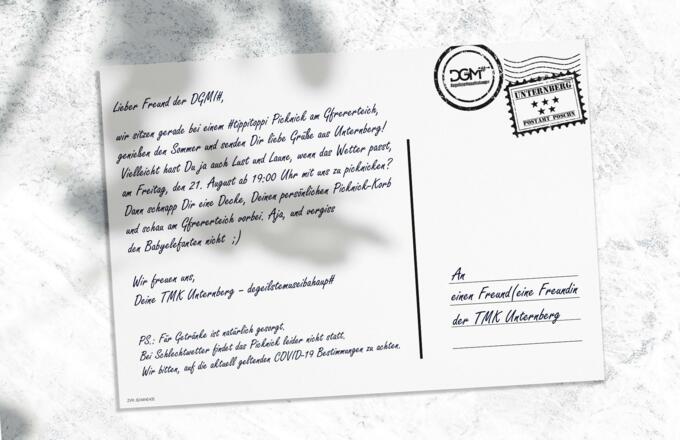 Lieber Freund der DGMIH,
wir sitzen gerade bei einem #tippitoppi Picknick am Gfrererteich,
genießen den Sommer und senden Dir liebe Grüße aus Unternberg!
Vielleicht hast Du ja auch Lust und Laune, wenn das Wetter passt,
am Freitag, den 21. August ab 19:00 Uhr mit uns zu picknicken?
Dann schnapp Dir eine Decke, Deinen persönlichen Picknick-Korb
und schau am Gfrererteich vorbei. Aja, und vergiss
den Babyelefanten nicht ;)
Wir freuen uns,
Deine TMK Unternberg – degeilstemuseibahaupH
PS.: Für Getränke ist natürlich gesorgt.
Bei Schlechtwetter findet das Picknick leider nicht statt.
Wir bitten, auf die aktuell geltenden COVID-19 Bestimmungen zu achten.
DGMIH
UNTERNBERG
POSTAMT POSCHN
An
einen Freund/eine Freundin
der TMK Unternberg